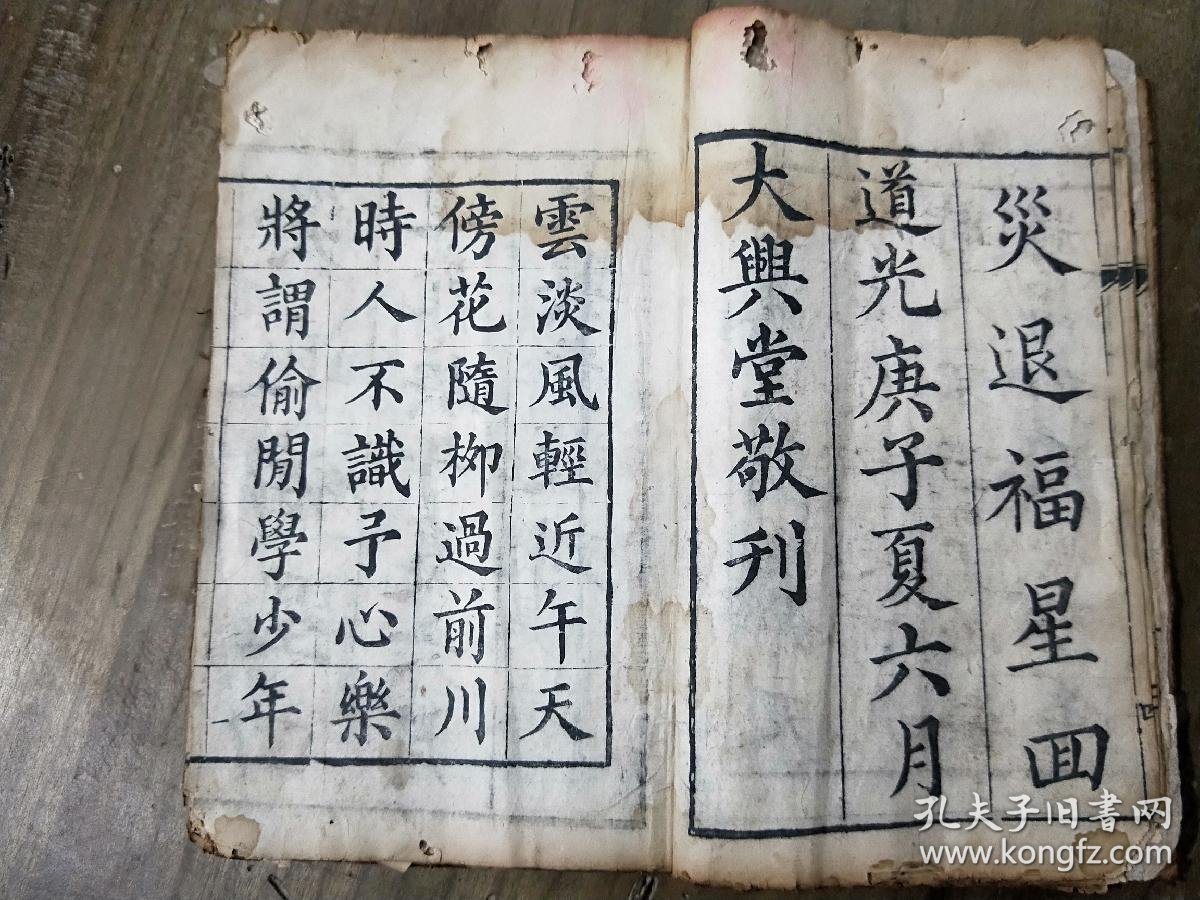 災退福星回
道光庚子夏六月
大興堂敬刊
雲淡風輕近午天
傍花隨栁過前川
時人不識予心樂
將謂偷閒學少年
孔夫子旧书网
www.kongfz.com